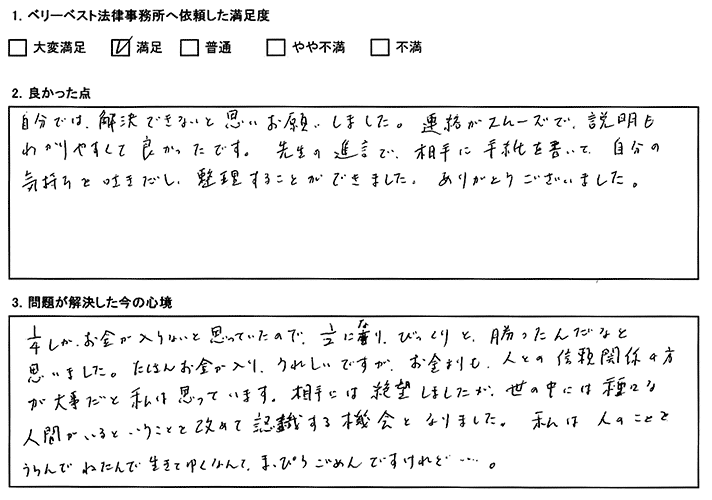 1. ベリーベスト法律事務所へ依頼した満足度
大変満足 満足 普通 やや不満 不満
2. 良かった点
自分では、解決できないと思いお願いしました。連絡がスムーズで、説明も
わかりやすくて良かったです。先生の進言で、相手に手紙を書いて、自分の
気持ちを吐きだし、整理することができました。ありがとうございました。
3. 問題が解決した今の心境
1/4しか、お金が入らないと思っていたので、1/2になり、びっくりと、勝ったんだなと
思いました。たくさんお金が入り、うれしいですが、お金よりも、人との信頼関係の方
が大事だと私は思っています。相手には絶望しましたが、世の中には種々な
人間がいるということを改めて認識する機会となりました。私は人のことを
うらんでねたんで生きてゆくなんて、まっぴらごめんですけれど…。